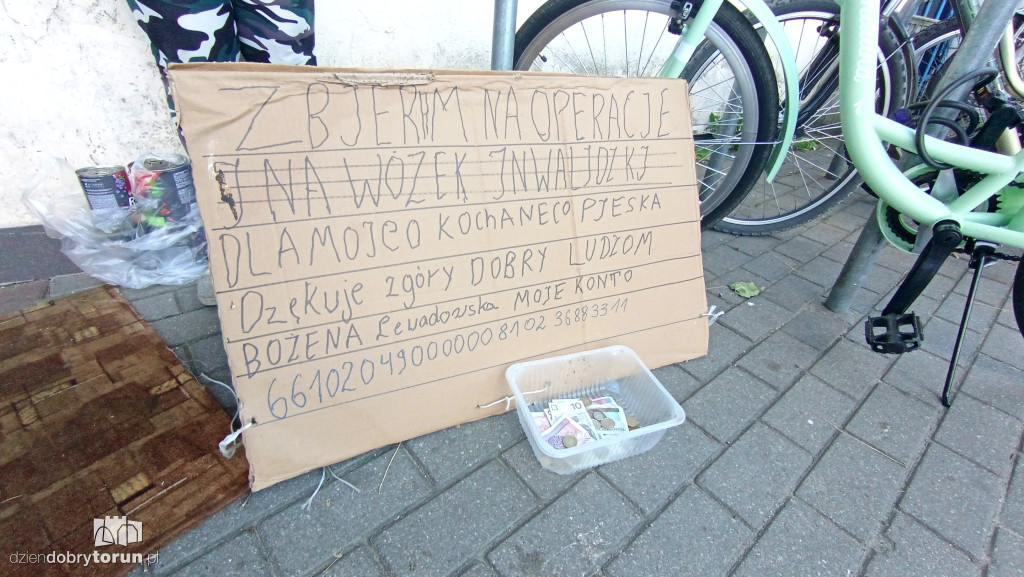 ZBJERAM NA OPERACJE
J NA WÓZEK JNWALJDZKJ
DLA MOJEGO KOCHANEGO PJESKA
Dzękuje zgóry DOBRY LUDZIOM
BOŻENA Lewadowska MOJE KONTO
66102049000000810236883311
10
dziendobrytorun.pl